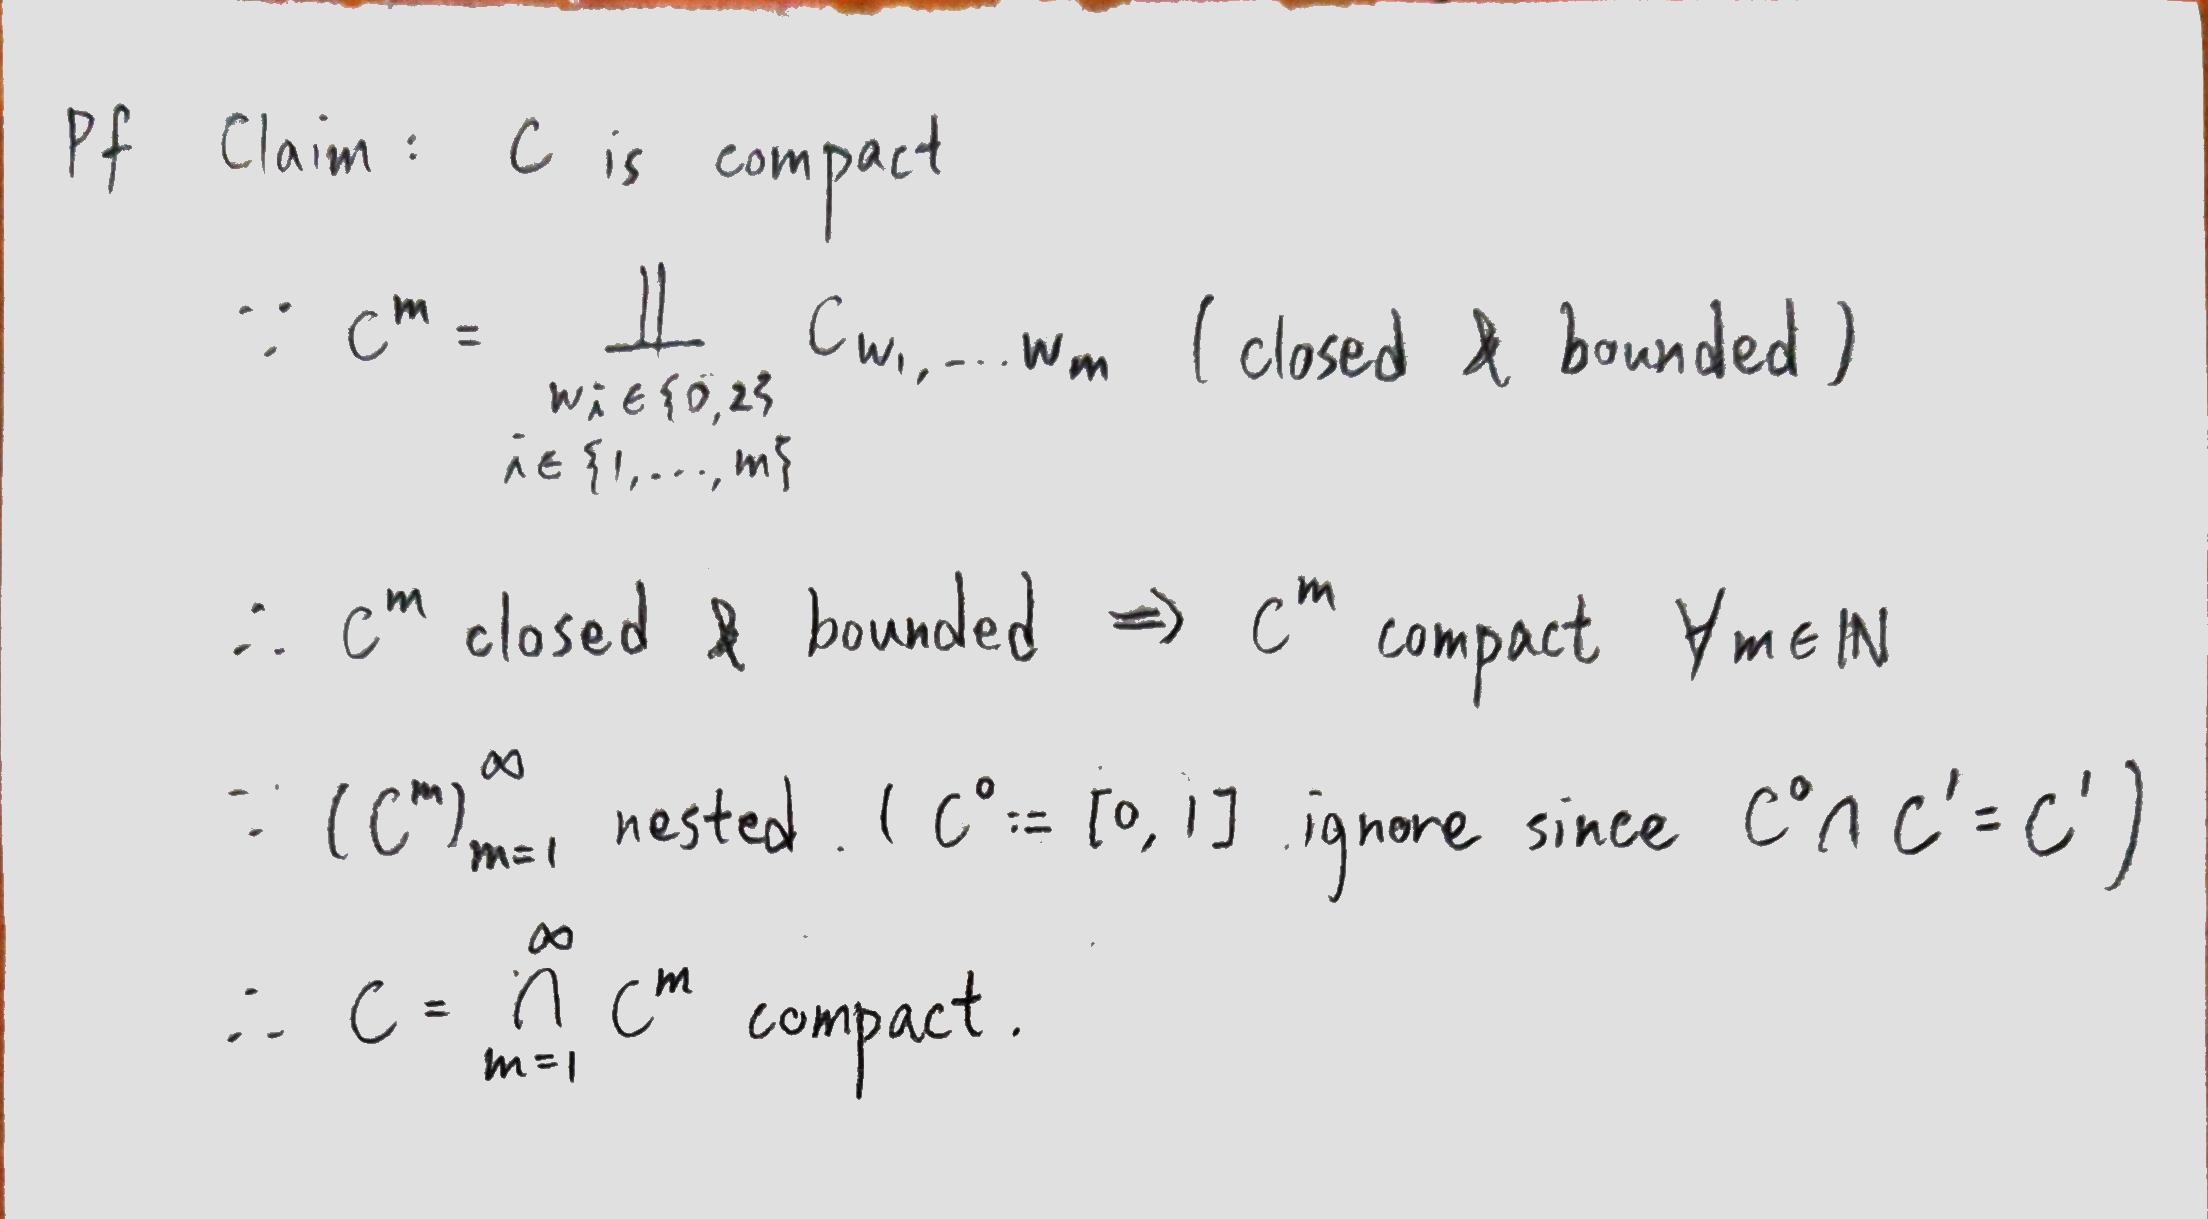 Pf Claim: C is compact
∵ C^m = ⨿_{w_i ∈ {0,2}, i ∈ {1,...,m}} C_{w_1,...w_m} (closed & bounded)
∴ C^m closed & bounded ⇒ C^m compact ∀m∈ℕ
∵ (C^m)_{m=1}^∞ nested. (C^0 := [0,1] ignore since C^0 ∩ C^1 = C^1)
∴ C = ∩_{m=1}^∞ C^m compact.